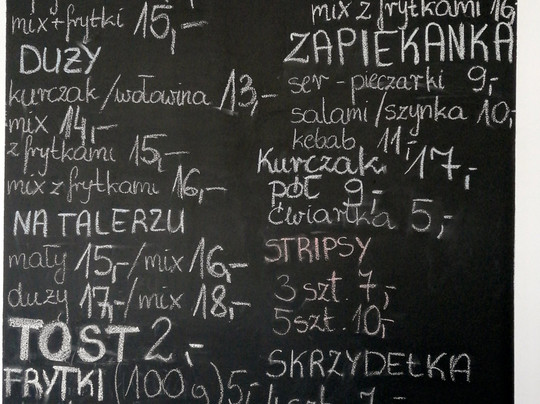 mix+frytki 15,-
DUŻY
kurczak/wołowina 13,-
mix 14,-
z frytkami 15,-
mix z frytkami 16,-
NA TALERZU
mały 15,-/mix 16,-
duży 17,-/mix 18,-
TOST 2,-
FRYTKI (100g) 5,-
mix z frytkami 16,
ZAPIEKANKA
ser-pieczarki 9,-
salami/szynka 10,-
kebab 11,-
Kurczak 17,-
pół 9,-
ćwiartka 5,-
STRIPSY
3 szt. 7,-
5 szt. 10,-
SKRZYDEŁKA